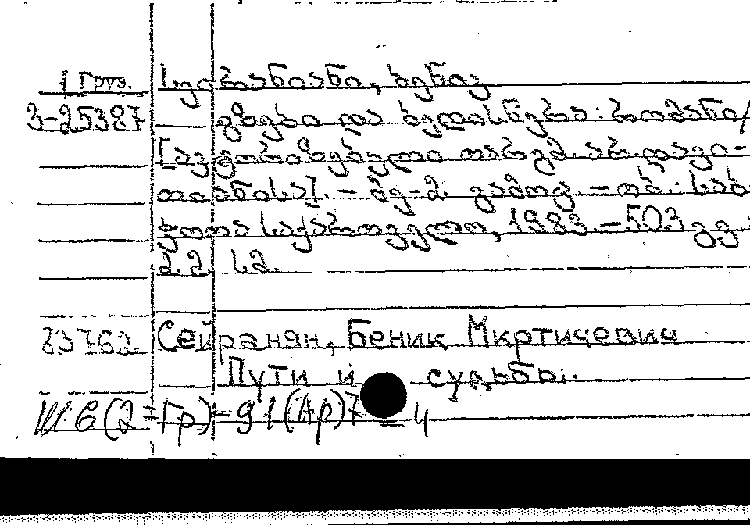 1 Груз. სეირანიანი, ბენიკ
3-25387 გზები და ბედისწერა: რომანი/
[ავტორიზებული თარგმ. არ. დავი-
თიანისა]. - მე-2 გამოც. - თბ.: საბ-
ჭოთა საქართველო, 1983 - 503 გვ.
22 სმ.
83762 Сейранян, Беник Мкртичевич
Пути и судьбы.
Ш 6(2=Гр)-91(Ар)7 = 4